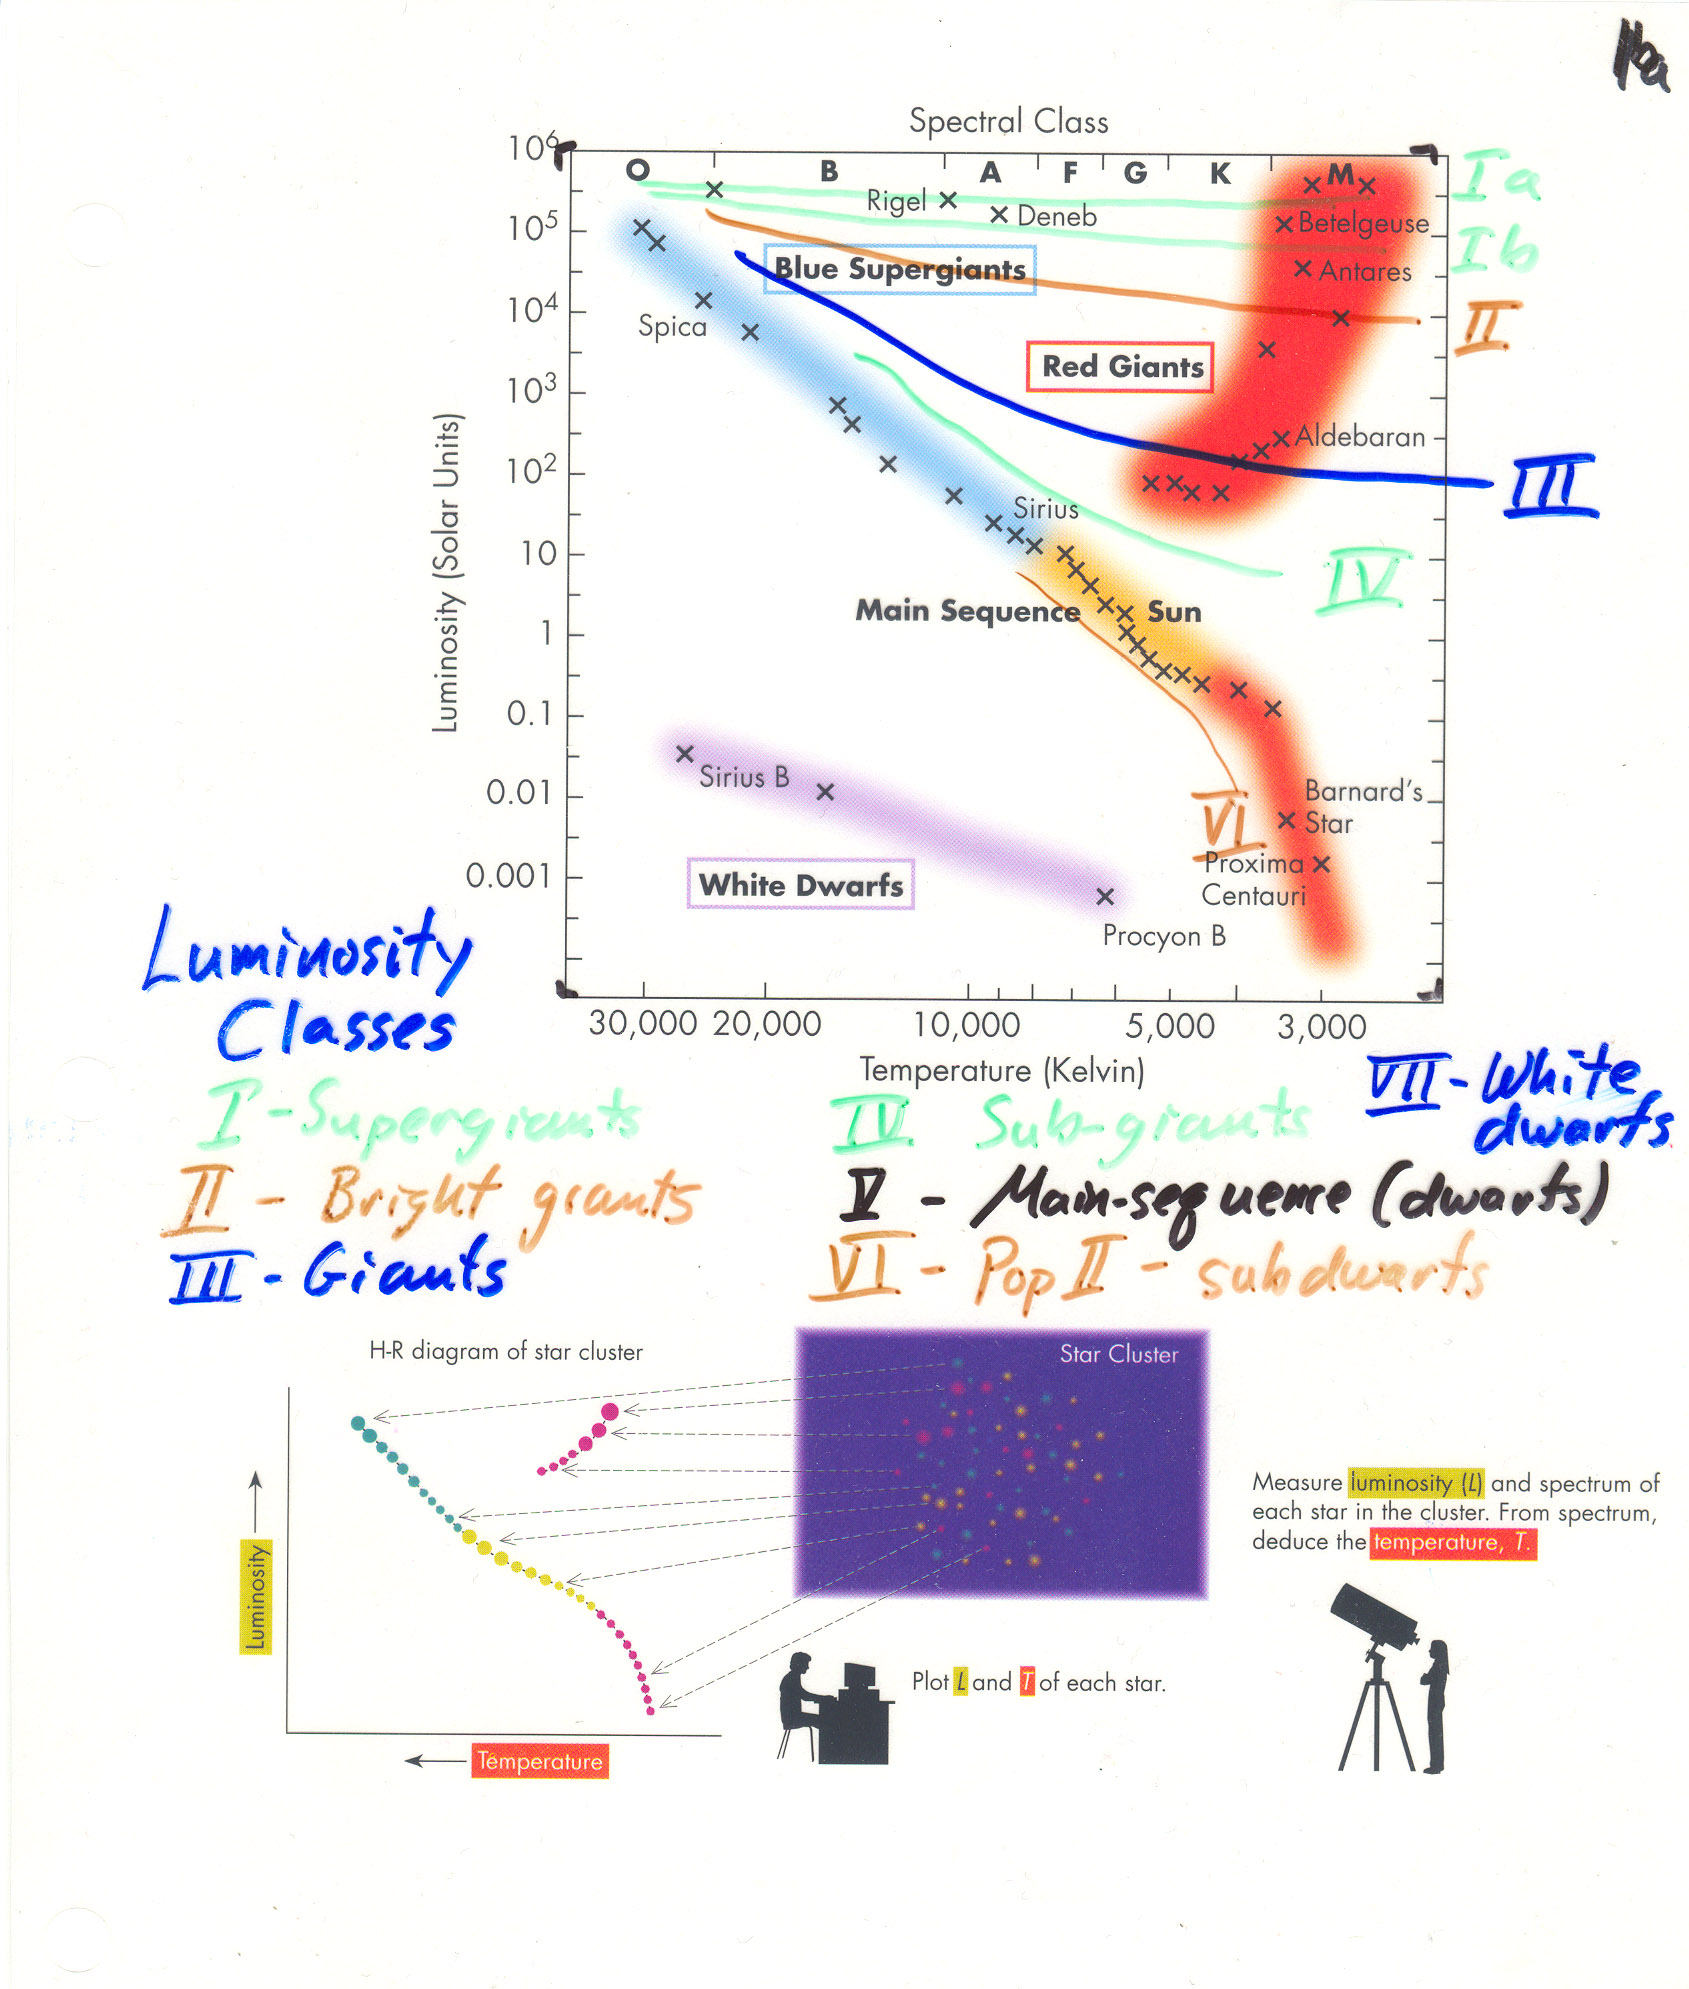 11a
Spectral Class
O B A F G K M
10⁶
10⁵
10⁴
10³
10²
10
1
0.1
0.01
0.001
Luminosity (Solar Units)
Ia
Ib
II
III
IV
VI
Rigel
Deneb
Betelgeuse
Antares
Blue Supergiants
Spica
Red Giants
Aldebaran
Sirius
Main Sequence
Sun
Sirius B
Barnard's
Star
Proxima
Centauri
White Dwarfs
Procyon B
30,000 20,000 10,000 5,000 3,000
Temperature (Kelvin)
Luminosity
Classes
I - Supergiants
II - Bright giants
III - Giants
IV Sub-giants
V - Main-sequence (dwarfs)
VI - Pop II - subdwarfs
VII - White
dwarfs
H-R diagram of star cluster
Star Cluster
Luminosity
Temperature
Measure luminosity (L) and spectrum of
each star in the cluster. From spectrum,
deduce the temperature, T.
Plot L and T of each star.